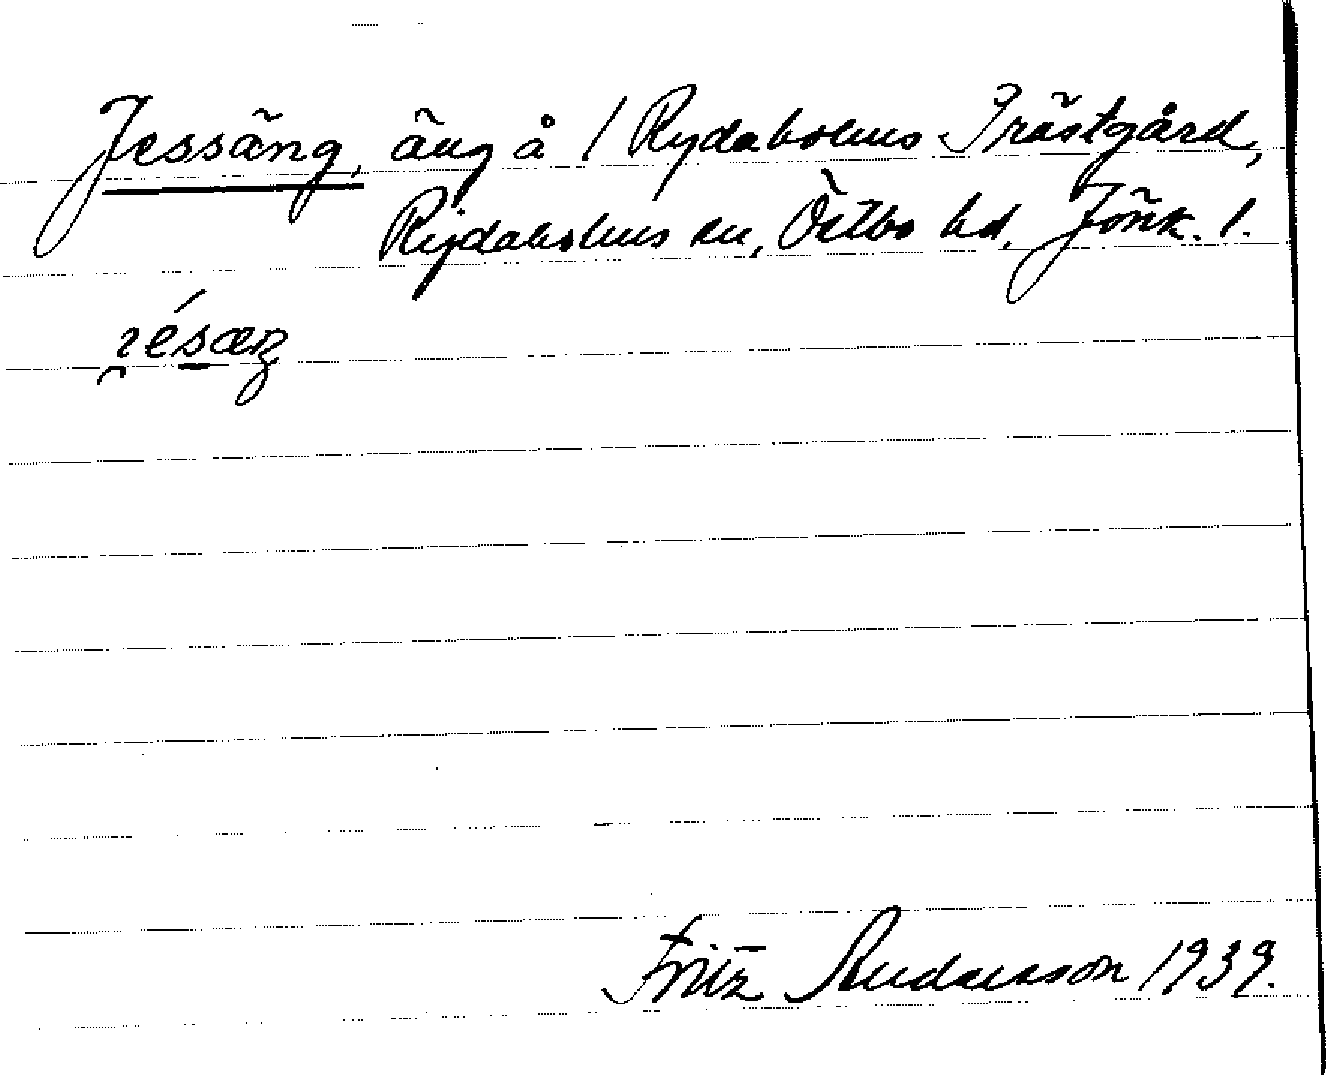 Jessäng, äng å 1 Rydaholms Prästgård,
Rydaholms sn, Östbo hd, Jönk. l.
Fritz Andersson 1939.